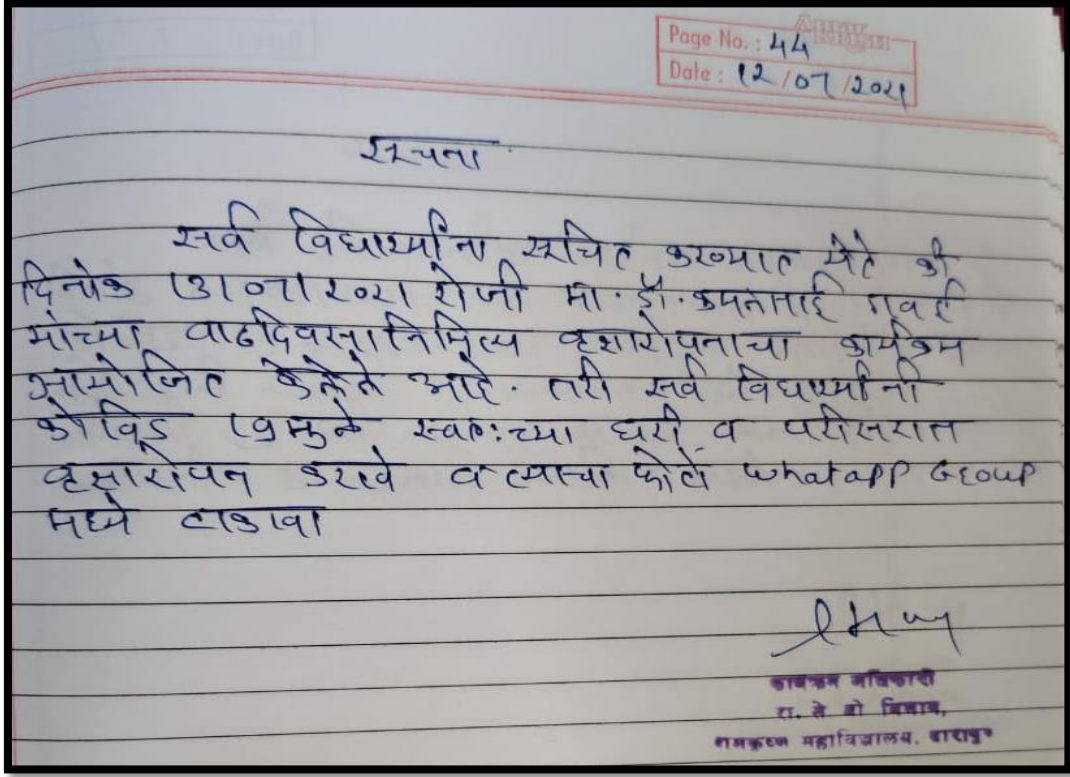 Page No. : 44
Date : 12/07/2021
सूचना
सर्व विद्यार्थ्यांना सूचित करण्यात येते की
दिनांक 13/07/2021 रोजी मा. डॉ. कमलताई गवई
यांच्या वाढदिवसानिमित्य वृक्षारोपनाचा कार्यक्रम
आयोजित केलेले आहे. तरी सर्व विद्यार्थ्यांनी
कोविड 19मुळे स्वतःच्या घरी व परीसरात
वृक्षारोपन करावे व त्याचा फोटो whatapp Group
मध्ये टाकावा
कार्यक्रम अधिकारी
रा. से यो विभाग,
महाविद्यालय, दारापुर